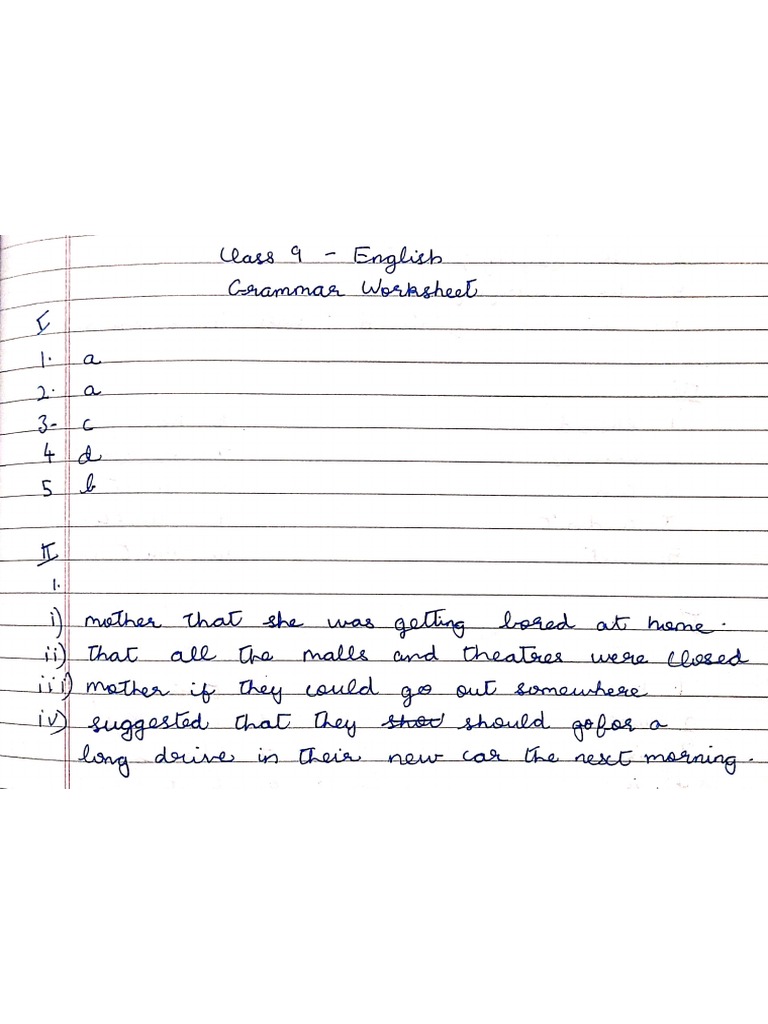 Class 9 - English
Grammar Worksheet
I
1. a
2. a
3- c
4 d
5 b
II
1.
i) mother that she was getting bored at home.
ii) that all the malls and theatres were closed
iii) mother if they could go out somewhere
iv) suggested that they should go for a
long drive in their new car the next morning.